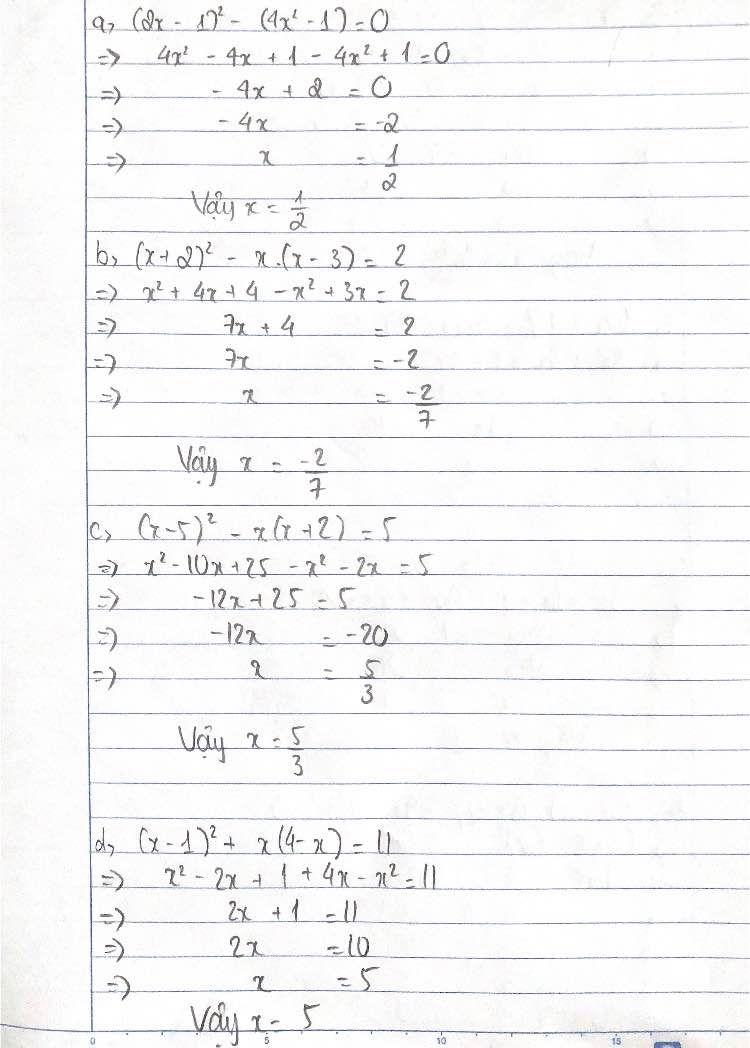 a, (2x - 1)² - (4x² - 1) = 0
=> 4x² - 4x + 1 - 4x² + 1 = 0
=> - 4x + 2 = 0
=> - 4x = -2
=> x = 1/2
Vậy x = 1/2
b, (x + 2)² - x.(x - 3) = 2
=> x² + 4x + 4 - x² + 3x = 2
=> 7x + 4 = 2
=> 7x = -2
=> x = -2/7
Vậy x = -2/7
c, (x-5)² - x(x+2) = 5
=> x² - 10x + 25 - x² - 2x = 5
=> -12x + 25 = 5
=> -12x = -20
=> x = 5/3
Vậy x = 5/3
d, (x - 1)² + x(4 - x) = 11
=> x² - 2x + 1 + 4x - x² = 11
=> 2x + 1 = 11
=> 2x = 10
=> x = 5
Vậy x = 5
0 5 10 15